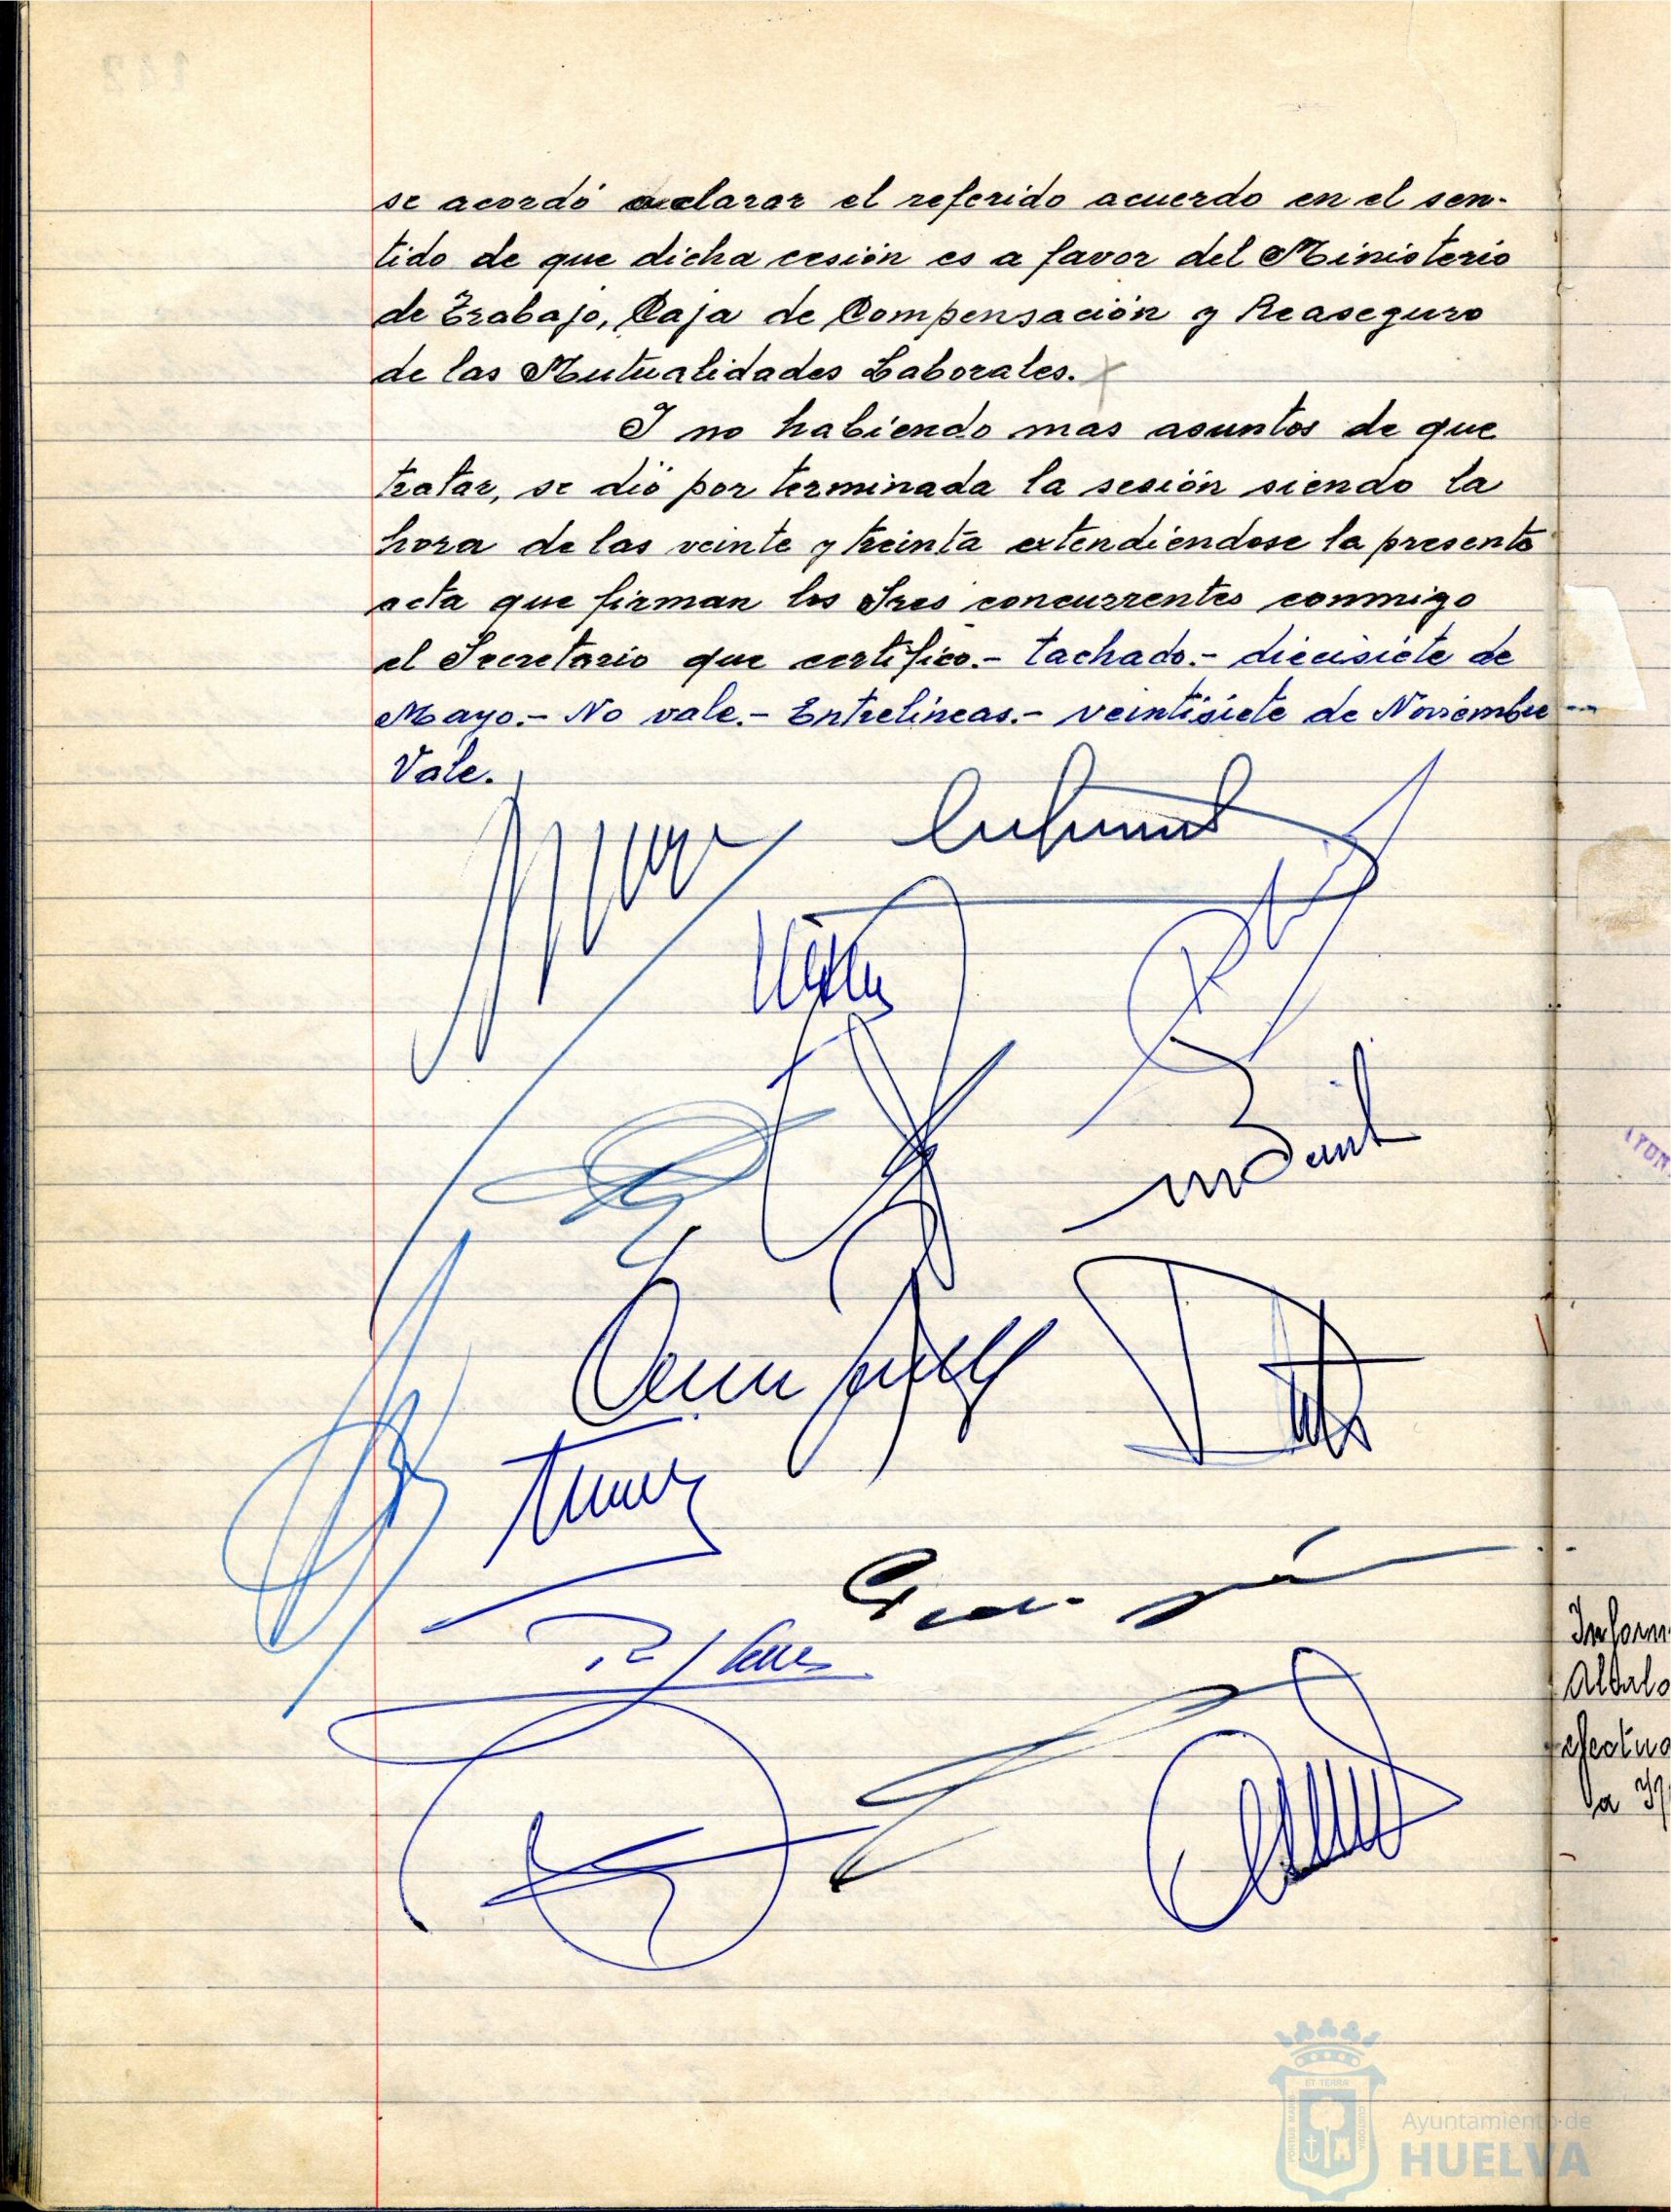 se acordó aclarar el referido acuerdo en el sen-
tido de que dicha cesión es a favor del Ministerio
de Trabajo, Caja de Compensación y Reaseguro
de las Mutualidades Laborales.
Y no habiendo mas asuntos de que
tratar, se dió por terminada la sesión siendo la
hora de las veinte y treinta extendiendose la presente
acta que firman los Sres concurrentes conmigo
el Secretario que certifico.- tachado.- diecisiete de
Mayo.- No vale.- Entrelineas.- veintisiete de Noviembre --
Vale.
AYUN
Inform
efectua
la
ET TERRAE
PORTUS MARIS
CUSTODIA
Ayuntamiento de
HUELVA